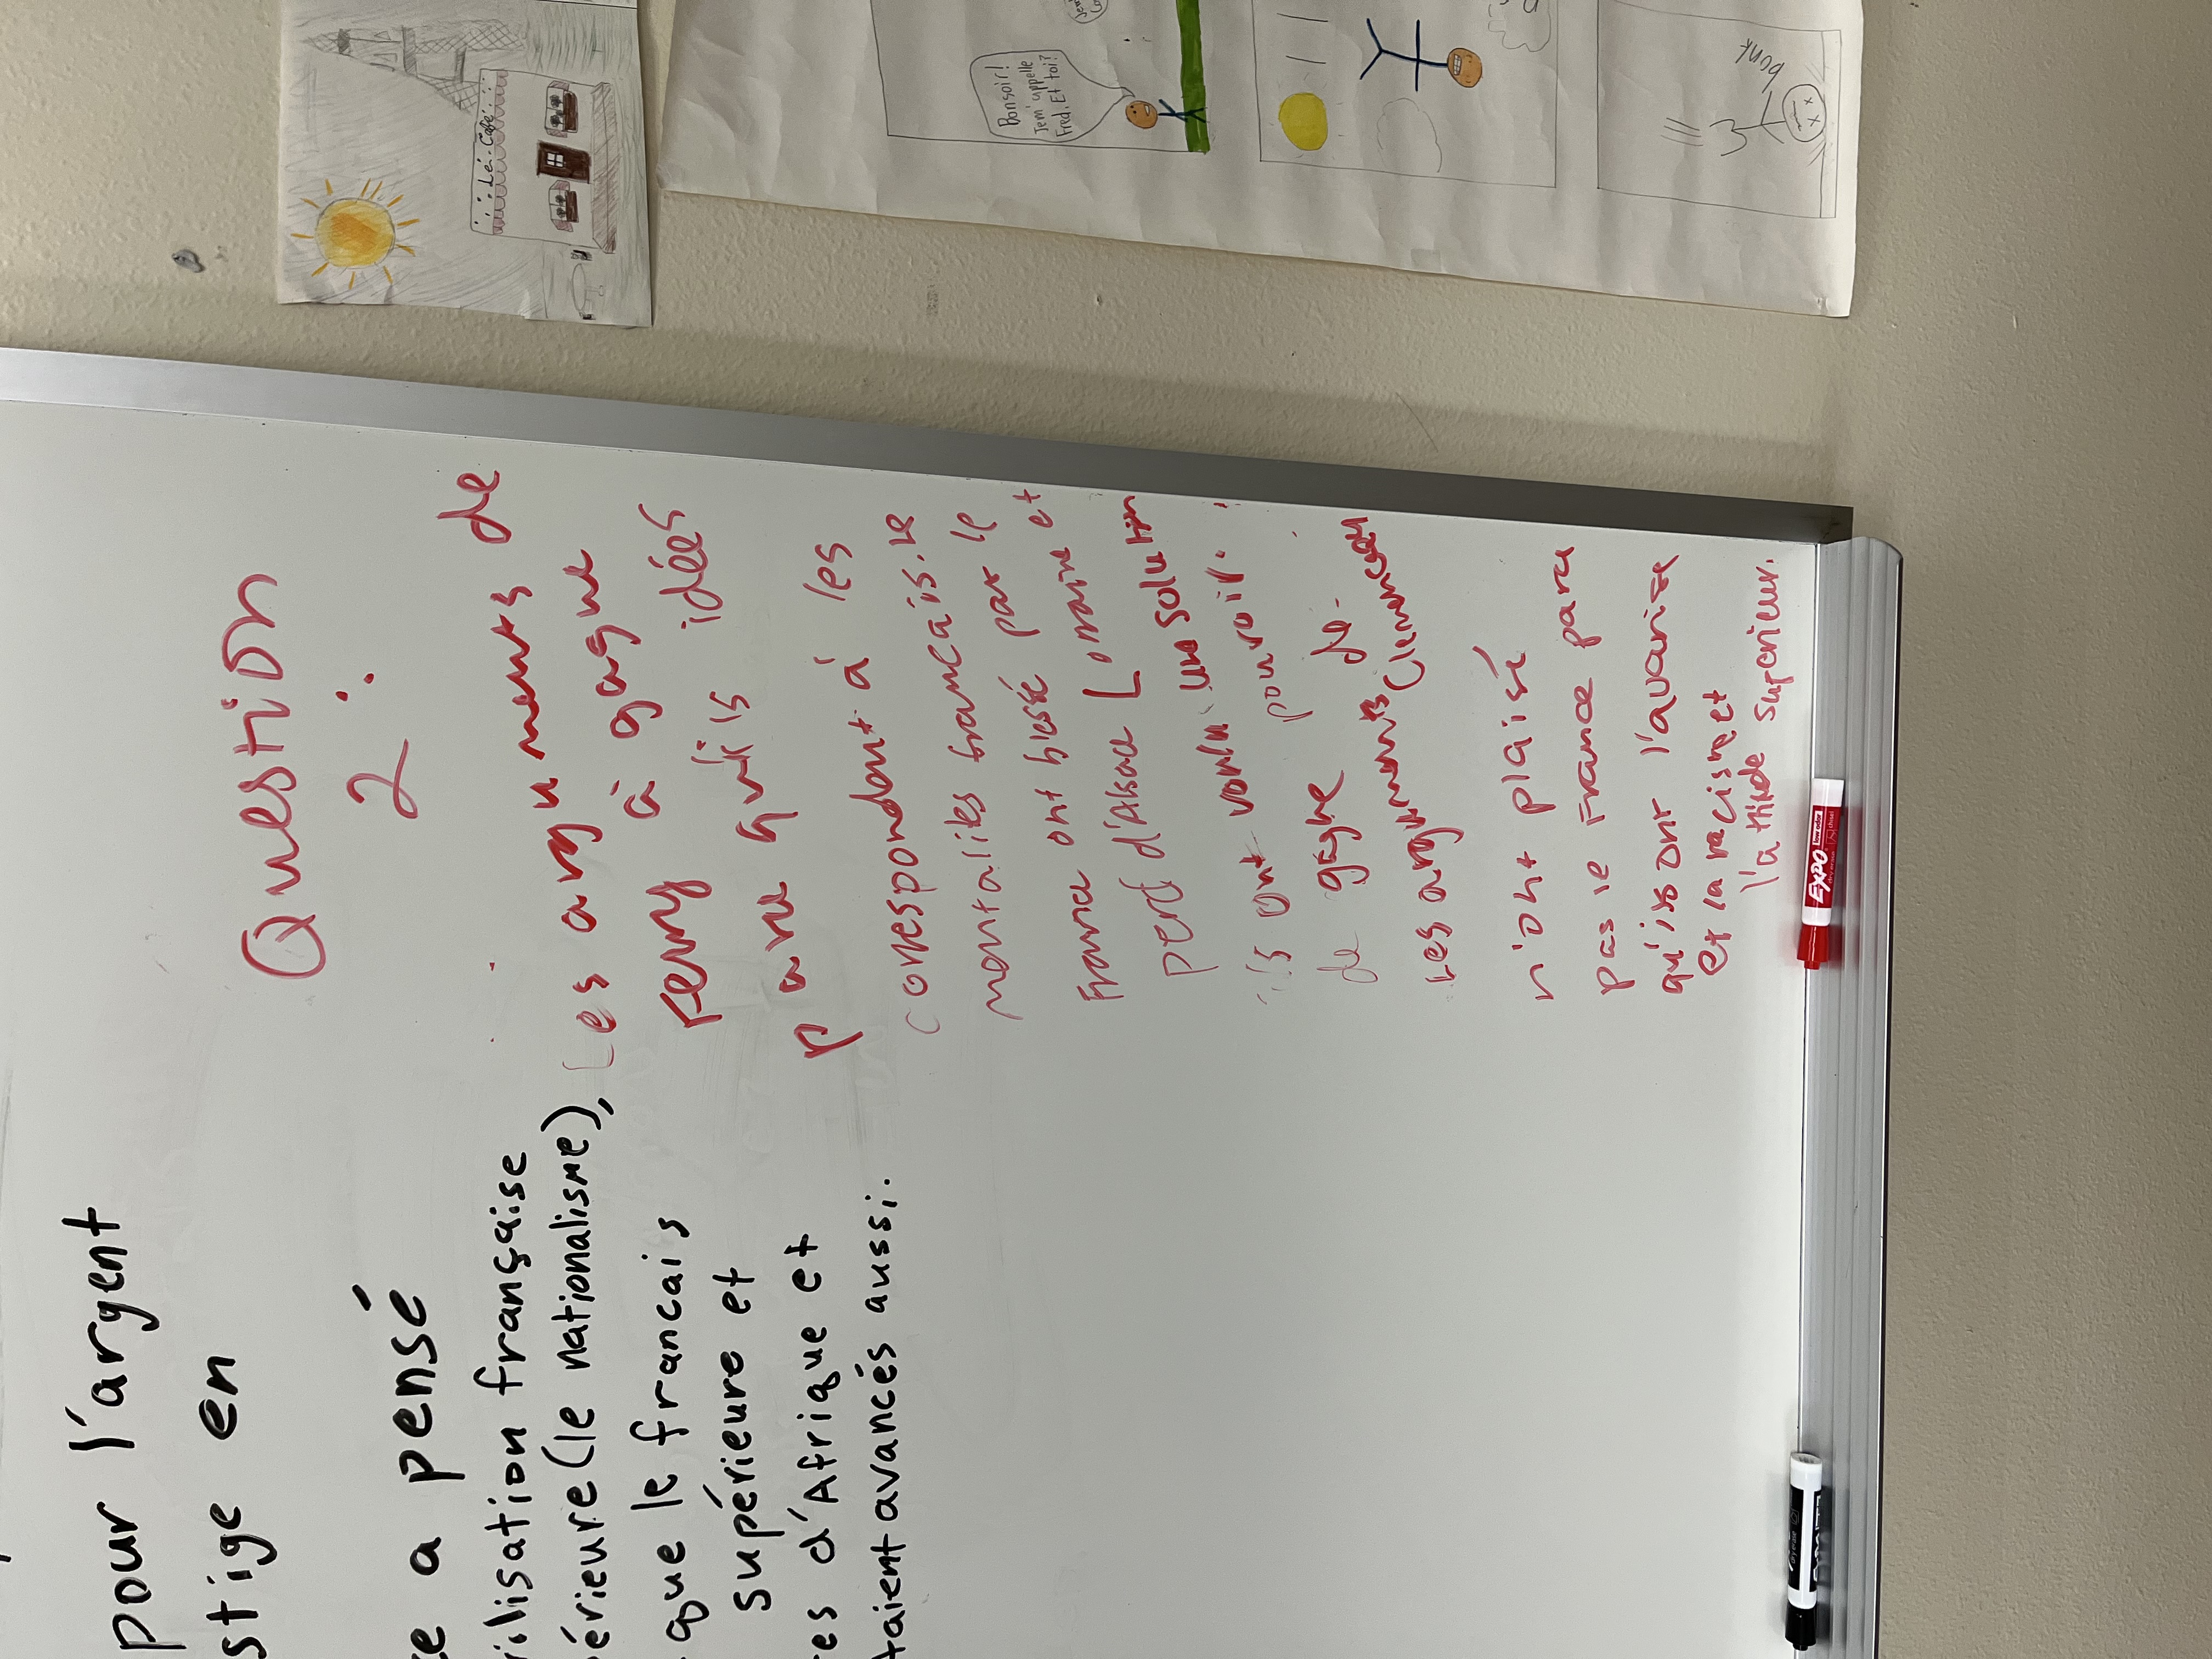 pour l'argent
stige en
ce a pensé
ilisation française
érieure (le nationalisme),
que le francais
supérieure et
es d'Afrique et
taient avancés aussi.
Question
2 :
Les arguments de
Ferry à gagne
parce qu'ils idées
correspondent à les
mentalites francais. Le
France ont blessé par le
perd d'Alsace Lorraine et
ils ont voulu une solution
de gagne pouvoir.
Les arguments de
Clemenceau
n'ont plaisé
pas le France parce
qu'ils ont l'avarise
et la racisme et
l'attitude superieur.
EXPO
low odor
dry erase
chisel
dry erase
Le Café
Bonsoir!
Jem'appelle
Fred. Et toi?
bonk